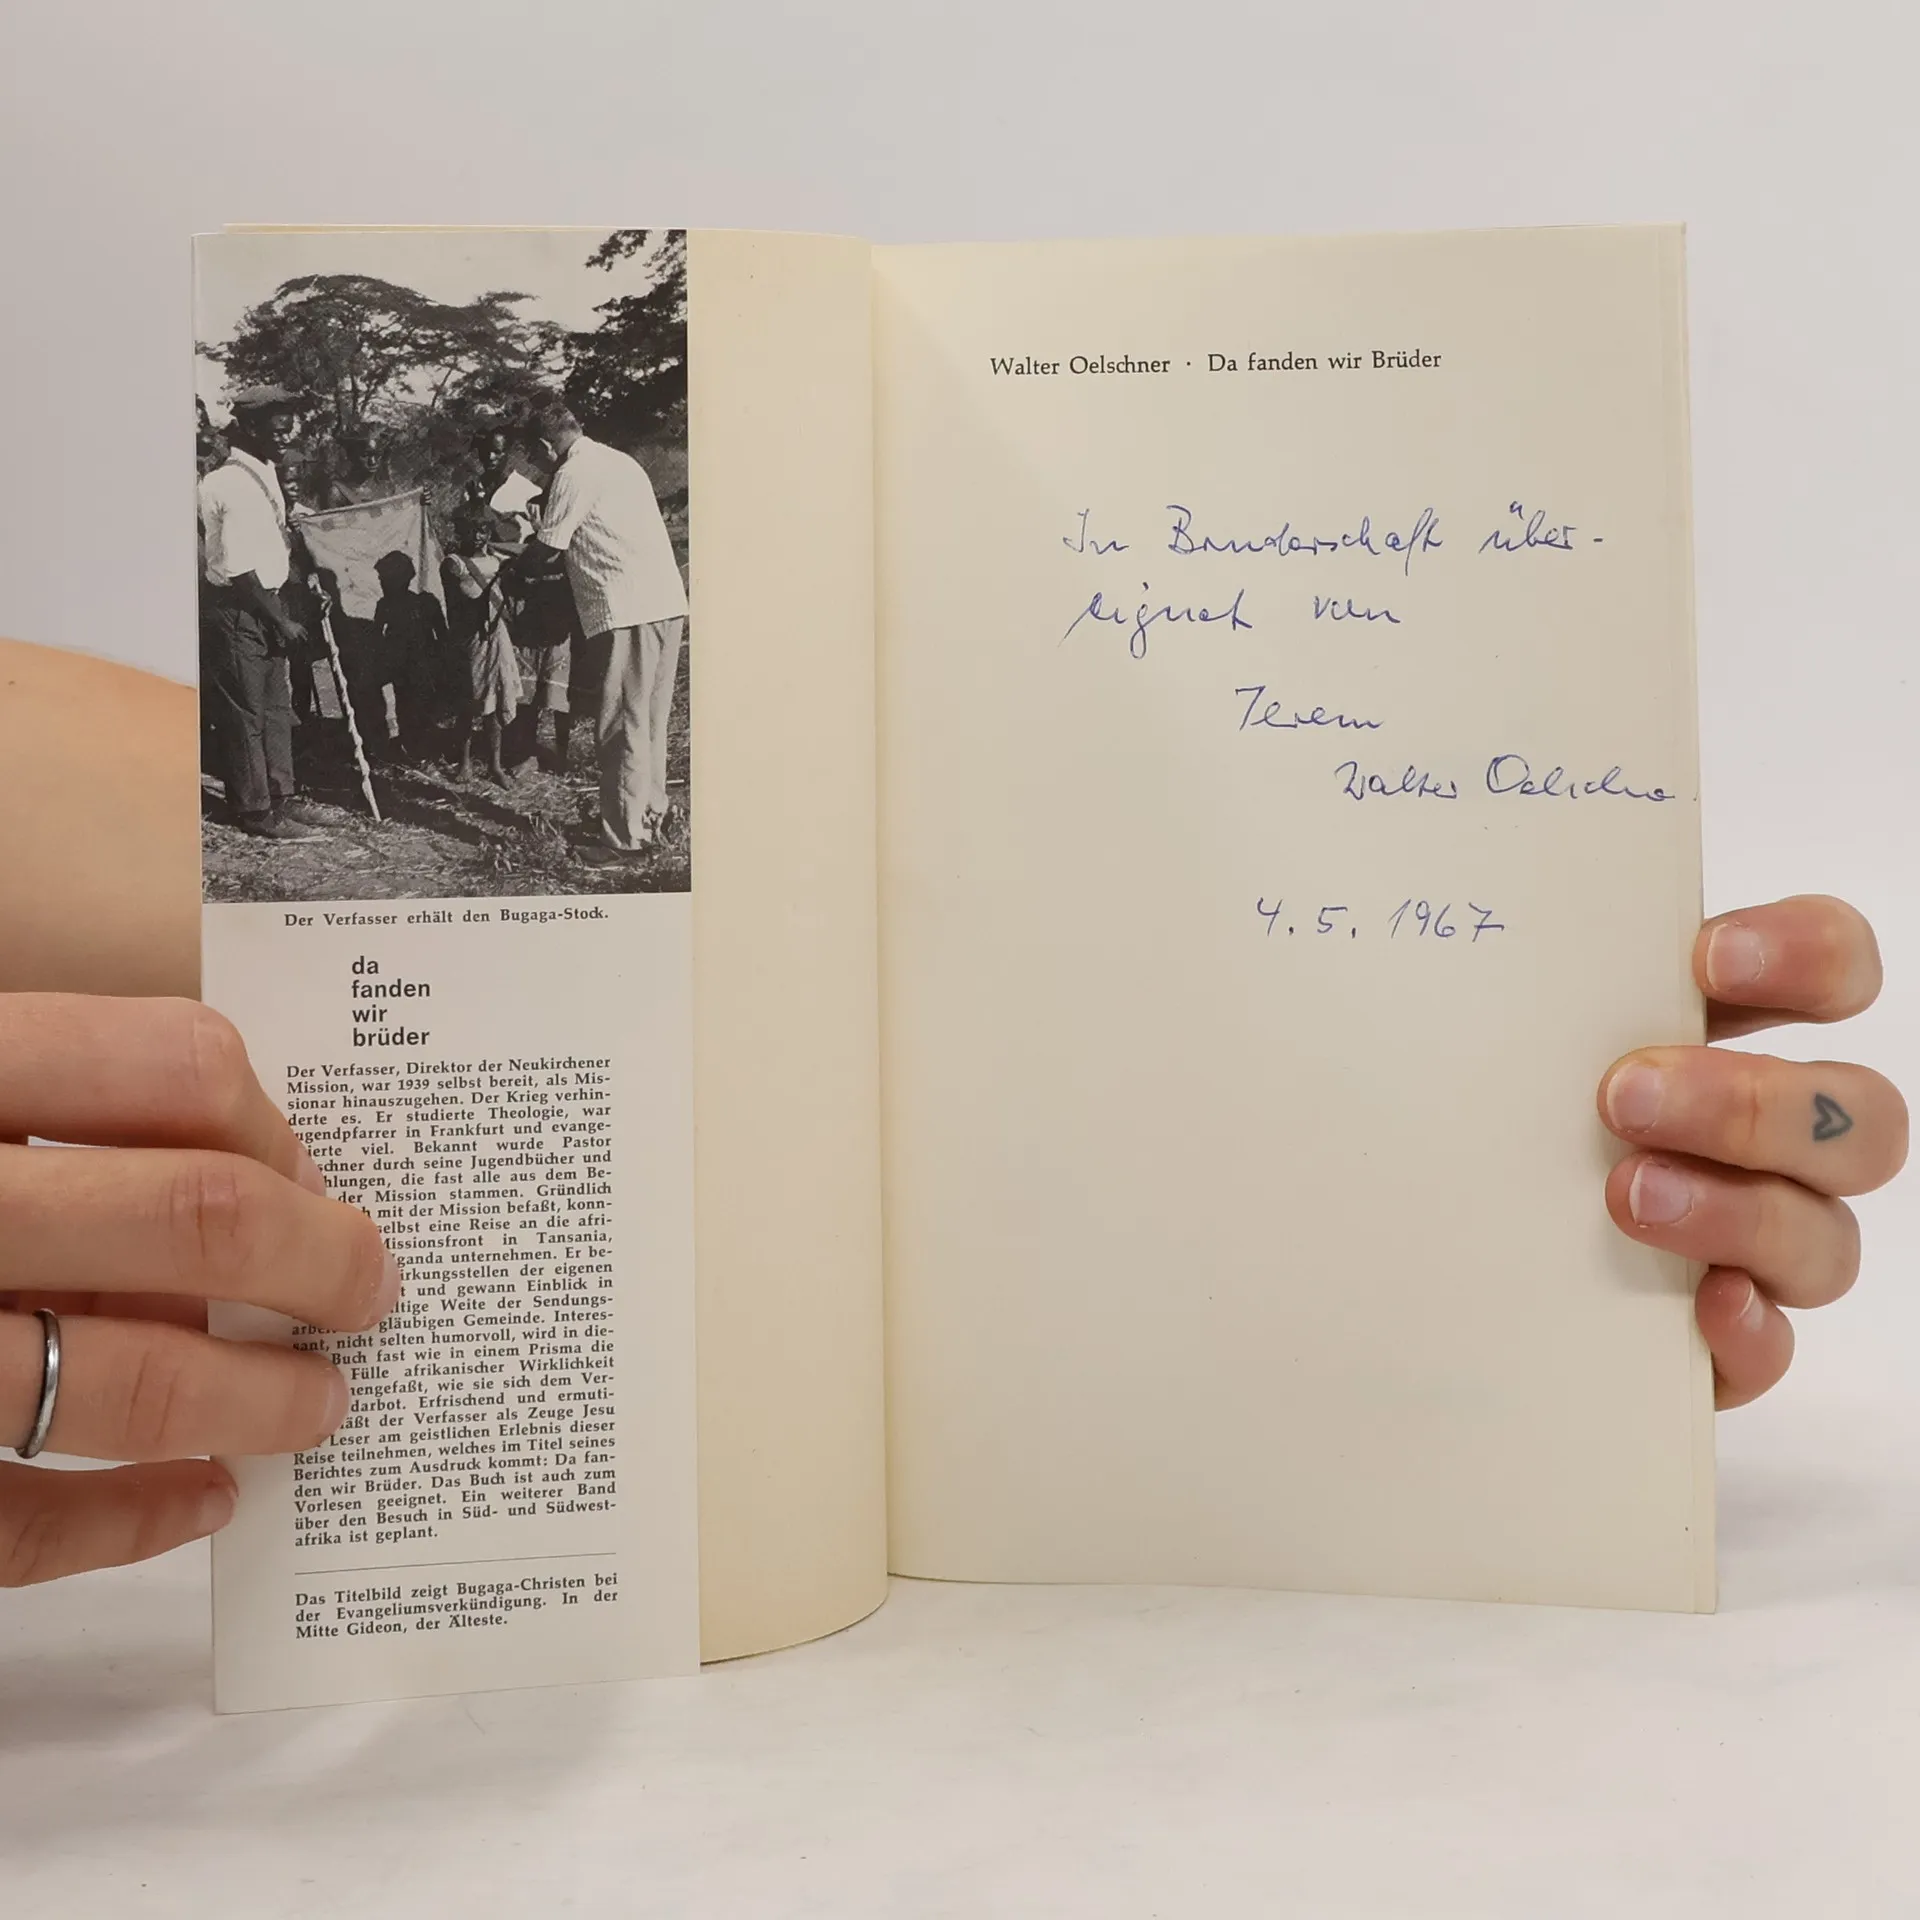 Der Verfasser erhält den Bugaga-Stock.
da
fanden
wir
brüder
Der Verfasser, Direktor der Neukirchener
Mission, war 1939 selbst bereit, als Mis-
sionar hinauszugehen. Der Krieg verhin-
derte es. Er studierte Theologie, war
ugendpfarrer in Frankfurt und evange-
ierte viel. Bekannt wurde Pastor
schner durch seine Jugendbücher und
hlungen, die fast alle aus dem Be-
der Mission stammen. Gründlich
h mit der Mission befaßt, konn-
selbst eine Reise an die afri-
Missionsfront in Tansania,
ganda unternehmen. Er be-
irkungsstellen der eigenen
t und gewann Einblick in
ltige Weite der Sendungs-
arbe gläubigen Gemeinde. Interes-
sant, nicht selten humorvoll, wird in die-
Buch fast wie in einem Prisma die
Fülle afrikanischer Wirklichkeit
engefaßt, wie sie sich dem Ver-
darbot. Erfrischend und ermuti-
läßt der Verfasser als Zeuge Jesu
Leser am geistlichen Erlebnis dieser
Reise teilnehmen, welches im Titel seines
Berichtes zum Ausdruck kommt: Da fan-
den wir Brüder. Das Buch ist auch zum
Vorlesen geeignet. Ein weiterer Band
über den Besuch in Süd- und Südwest-
afrika ist geplant.
Das Titelbild zeigt Bugaga-Christen bei
der Evangeliumsverkündigung. In der
Mitte Gideon, der Älteste.
Walter Oelschner · Da fanden wir Brüder
In Bruderschaft über-
eignet von
Walter Oelschner
4. 5. 1967